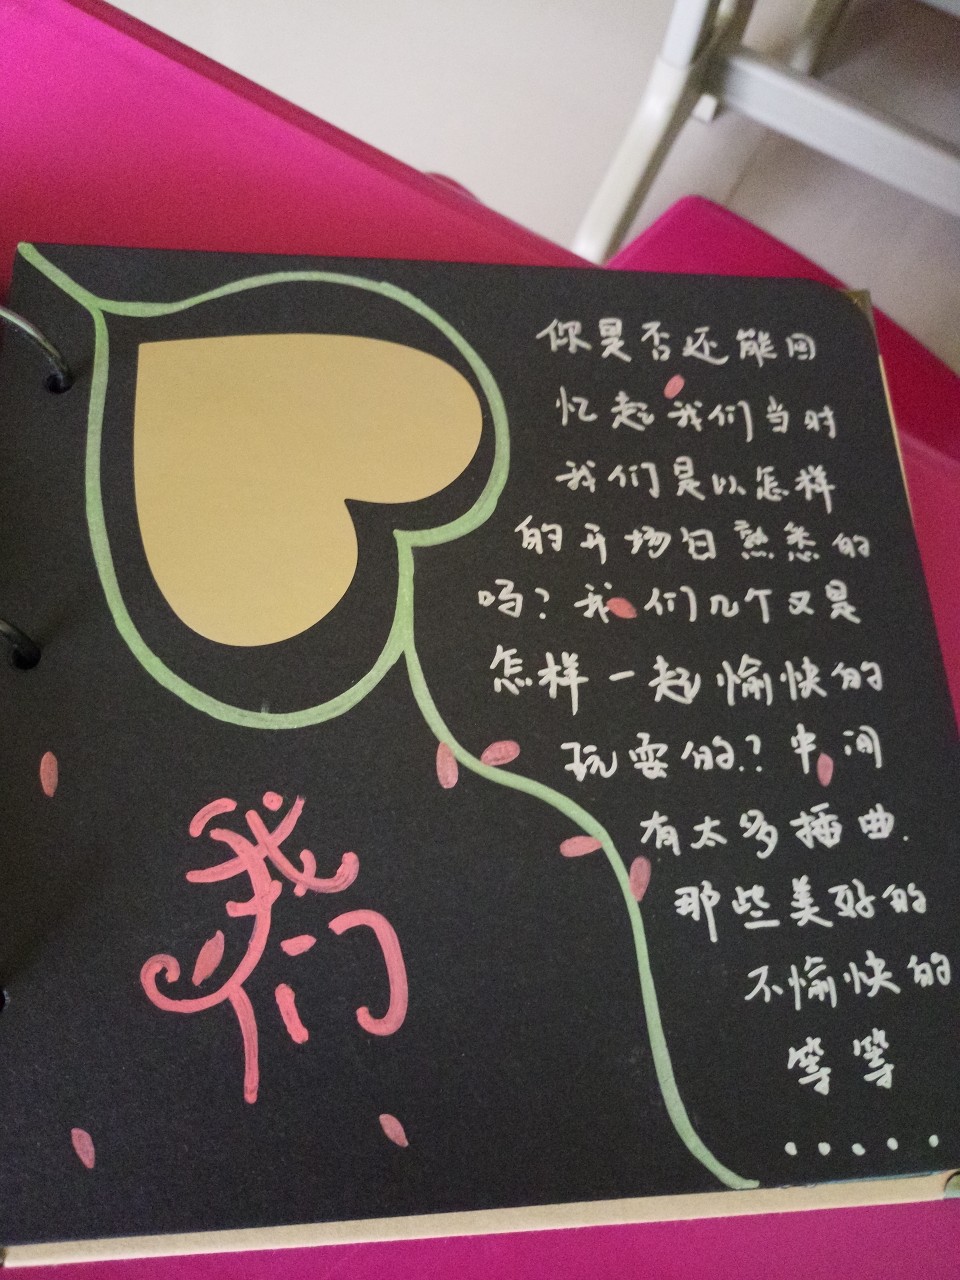 你是否还能回
忆起我们当时
我们是以怎样
的开场白熟悉的
吗？我们几个又是
怎样一起愉快的
玩耍的.？中间
有太多插曲.
那些美好的
不愉快的
等等
.....
我们